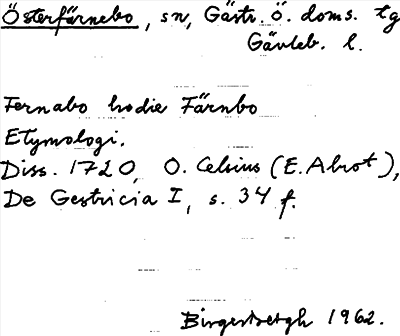 Österfärnebo, sn, Gästr. Ö. doms. tg
Gävleb. l.
Fernabo hodie Färnbo
Etymologi.
Diss. 1720, O. Celsius (E. Abrot),
De Gestricia I, s. 34 f.
1962.